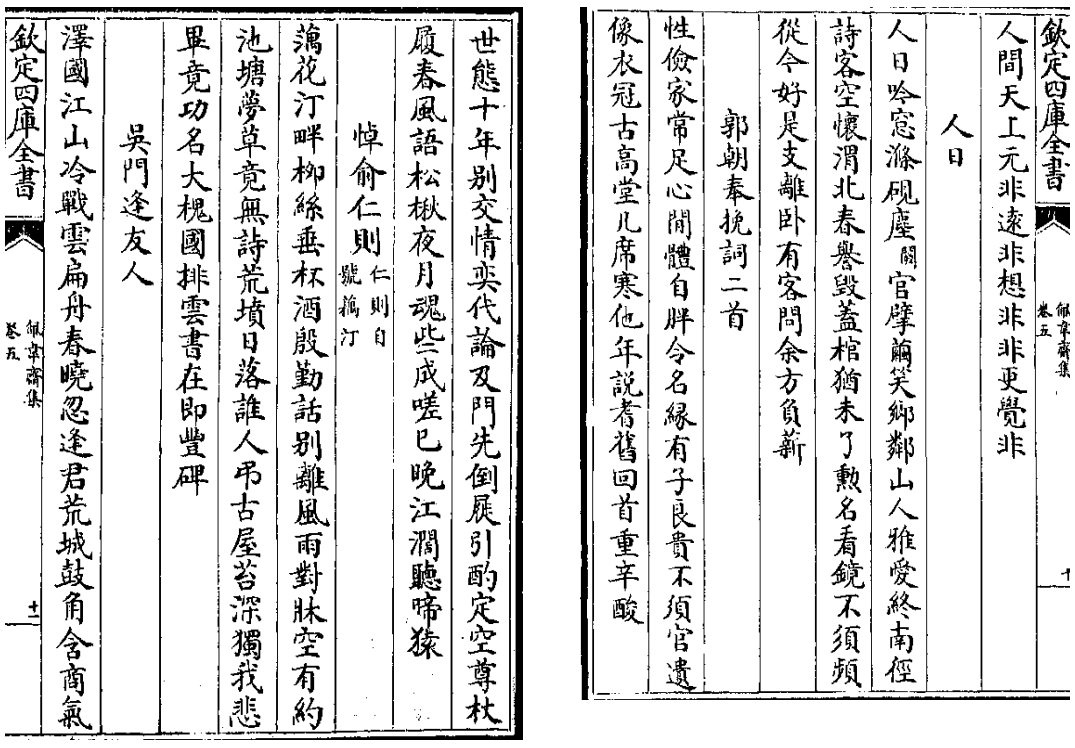 欽定四庫全書
佩韋齋集
卷五
十
人間天上元非遠非想非非更覺非
人日
人日吟窓滌硯塵闕官擘繭笑鄉鄰山人雅愛終南徑
詩客空懷渭北春譽毀蓋棺猶未了勲名看鏡不須頻
從今好是支離卧有客問余方負薪
郭朝奉挽詞二首
性儉家常足心閒體自胖令名縁有子良貴不須官遺
像衣冠古高堂几席寒他年説耆舊回首重辛酸
世態十年别交情奕代論及門先倒屣引酌定空尊杖
履春風語松楸夜月魂些成嗟已晩江濶聽啼猿
悼俞仁則仁則自
號藕汀
藕花汀畔栁絲垂杯酒殷勤話别離風雨對牀空有約
池塘夢草竟無詩荒墳日落誰人弔古屋苔深獨我悲
畢竟功名大槐國排雲書在即豐碑
吳門逢友人
澤國江山冷戰雲扁舟春曉忽逢君荒城鼓角含商氣
欽定四庫全書
佩韋齋集
卷五
十一